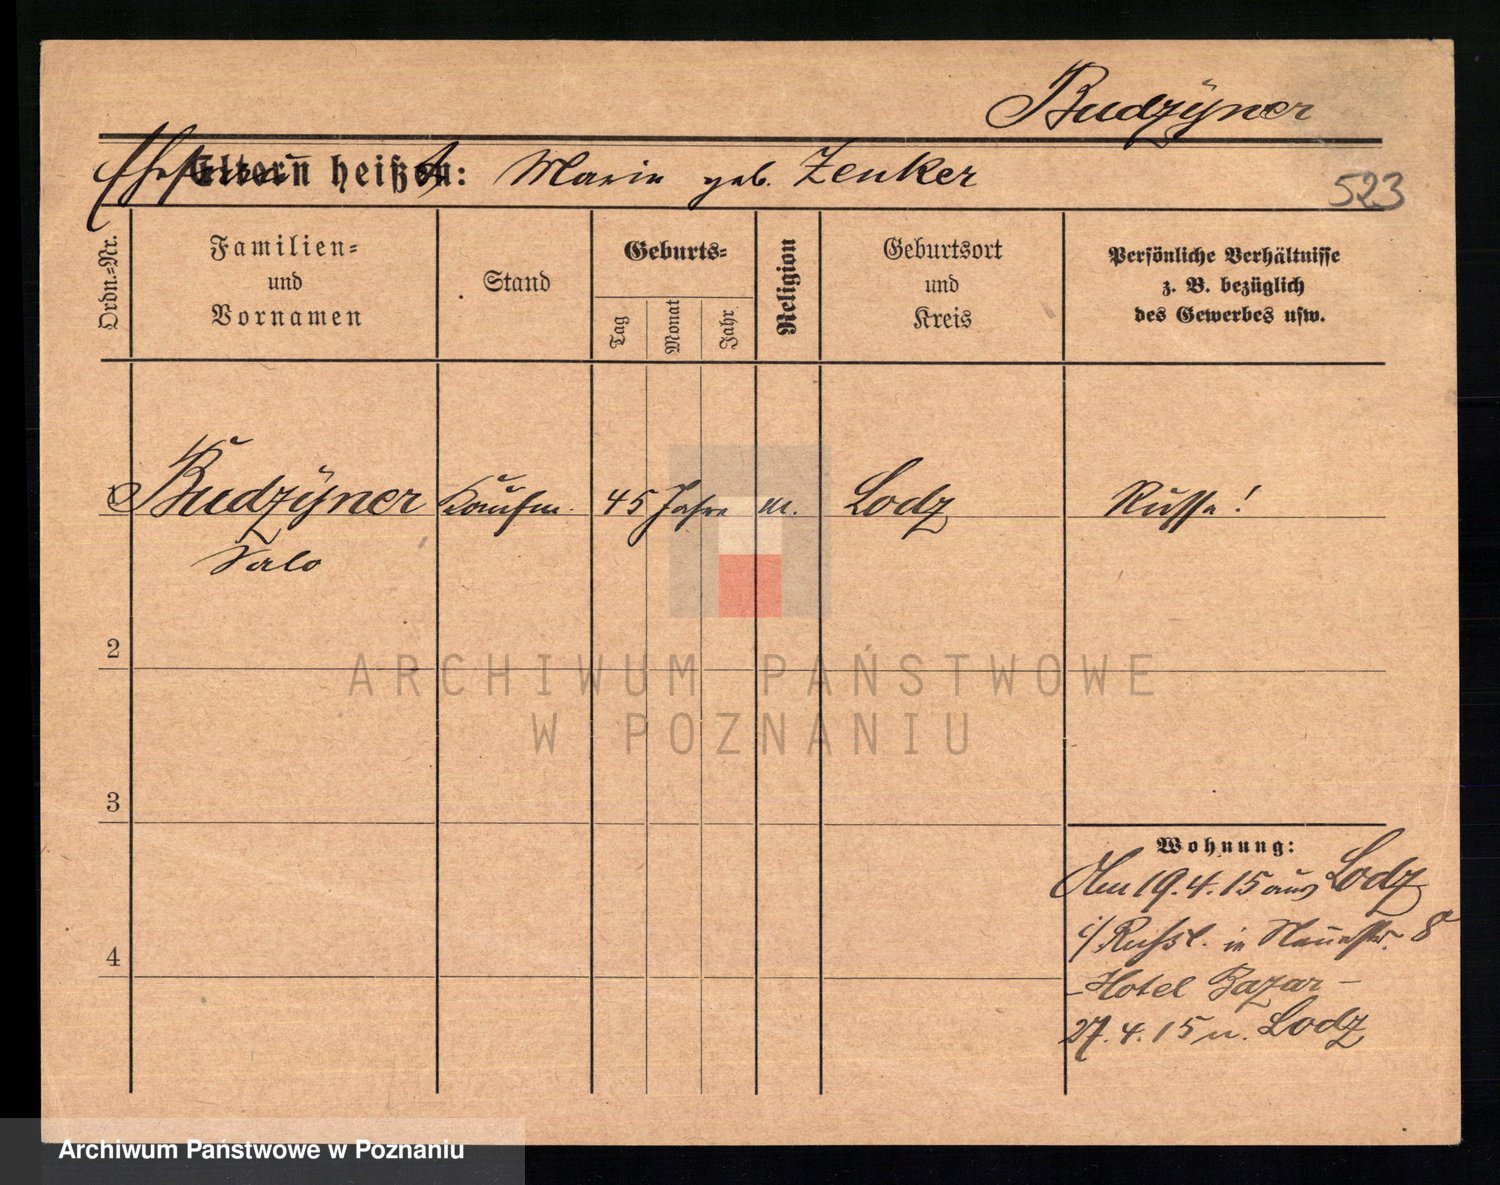 Budzÿner
Ehefrau heißt: Marie geb. Zenker
523
Ordn.-Nr.
Familien-
und
Vornamen
Stand
Geburts-
Tag
Monat
Jahr
Religion
Geburtsort
und
Kreis
Persönliche Verhältnisse
z. B. bezüglich
des Gewerbes usw.
1 Budzÿner Kaufm. 45 Jahre m. Lodz Russe!
Salo
2
3
4
Wohnung:
Am 19.4.15 aus Lodz
i/Russl. in Neuestr. 8
- Hotel Bazar -
27.4.15 n. Lodz
ARCHIWUM PAŃSTWOWE
W POZNANIU
Archiwum Państwowe w Poznaniu